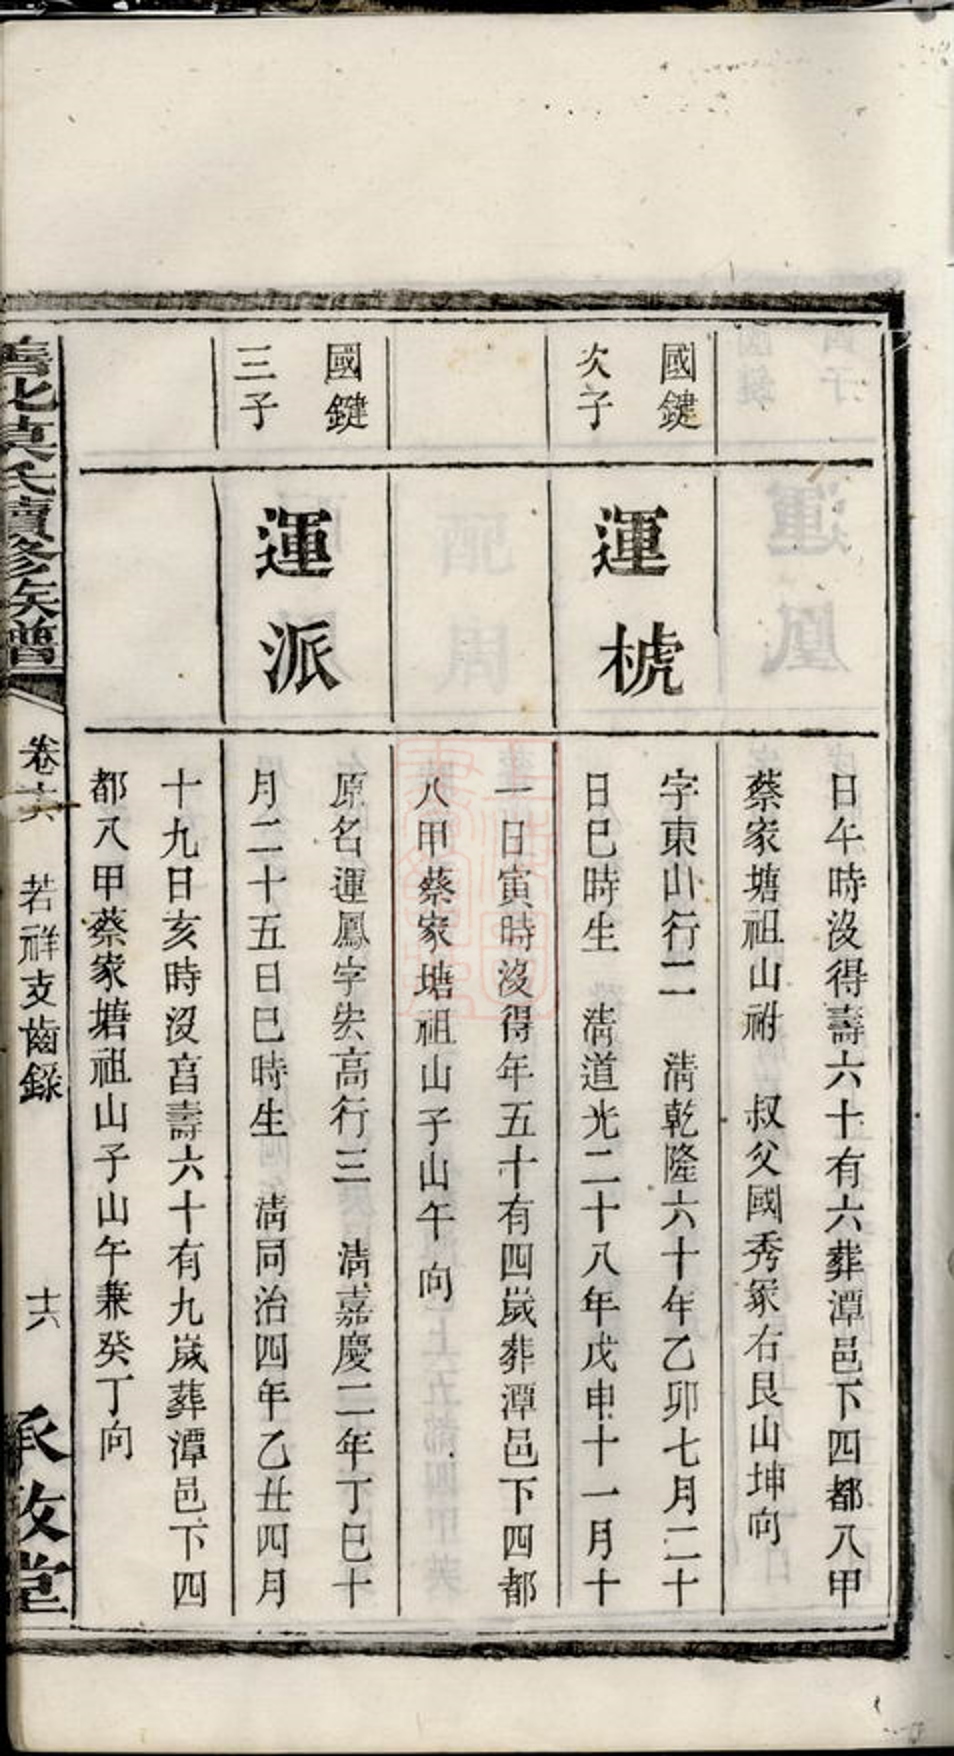 日午時沒得壽六十有六葬潭邑下四都八甲
蔡家塘祖山祔 叔父國秀冢右艮山坤向
國鍵
次子
運㯉
字東山行二 淸乾隆六十年乙卯七月二十
日巳時生 淸道光二十八年戊申十一月十
一日寅時沒得年五十有四嵗葬潭邑下四都
八甲蔡家塘祖山子山午向
國鍵
三子
運派
原名運鳳字宏高行三 淸嘉慶二年丁巳十
月二十五日巳時生 淸同治四年乙丑四月
十九日亥時沒壽六十有九嵗葬潭邑下四
都八甲蔡家塘祖山子山午兼癸丁向
善化莫氏續修族譜
卷十六 若祥支齒錄
十六
承啟堂